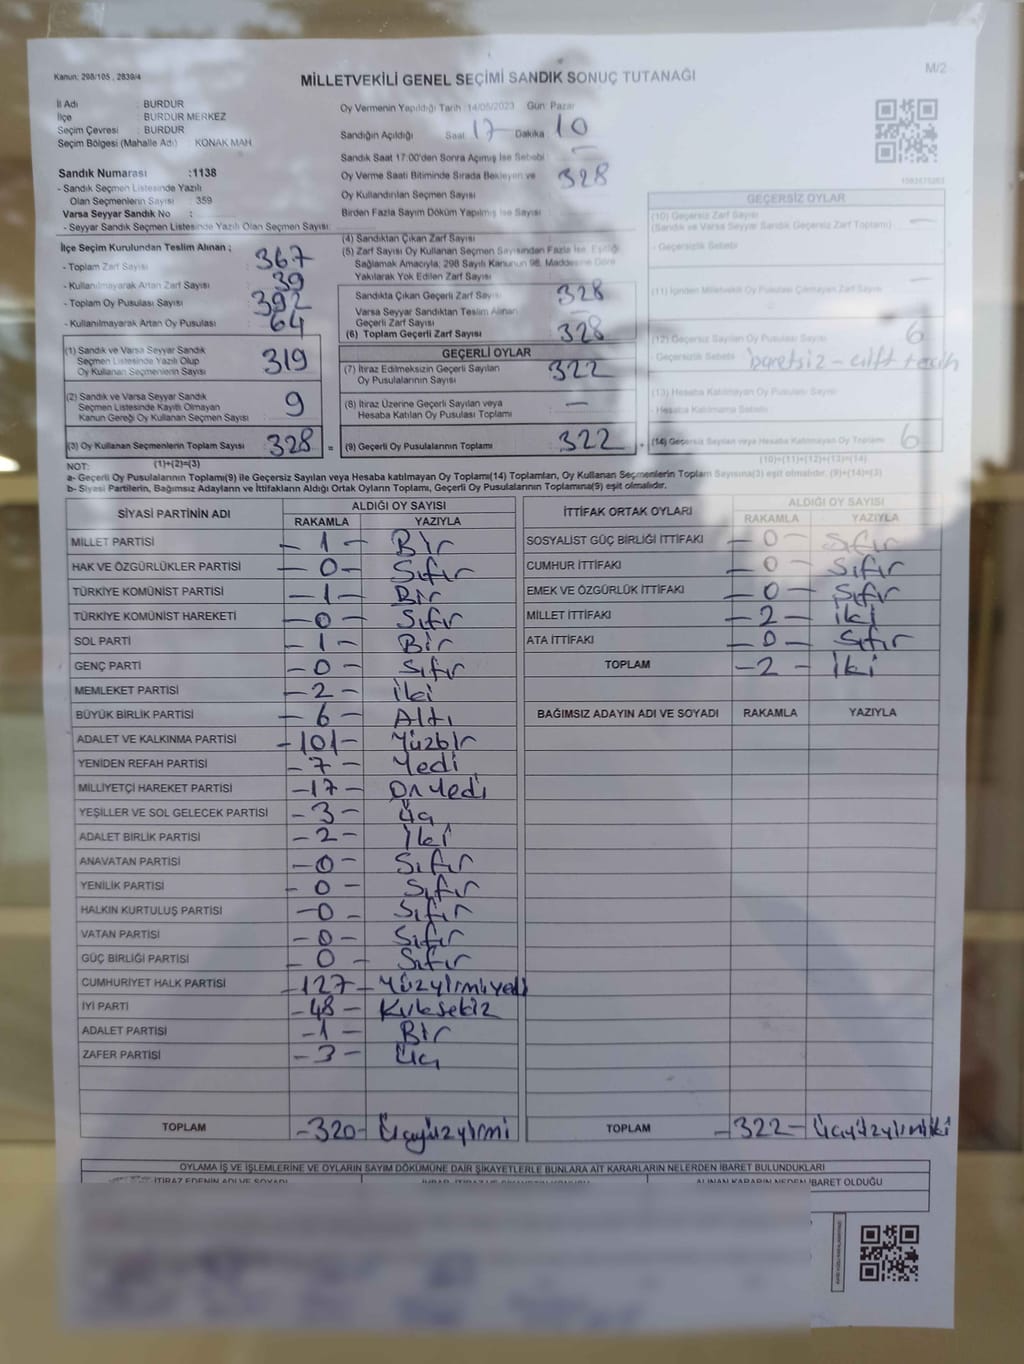 Kanun: 298/105 , 2839/4
MİLLETVEKİLİ GENEL SEÇİMİ SANDIK SONUÇ TUTANAĞI
M/2
İl Adı : BURDUR
İlçe : BURDUR MERKEZ
Seçim Çevresi : BURDUR
Seçim Bölgesi (Mahalle Adı) : KONAK MAH
Sandık Numarası :1138
- Sandık Seçmen Listesinde Yazılı
Olan Seçmenlerin Sayısı : 359
Varsa Seyyar Sandık No :
- Seyyar Sandık Seçmen Listesinde Yazılı Olan Seçmen Sayısı :
Oy Vermenin Yapıldığı Tarih :14/05/2023 Gün: Pazar
Sandığın Açıldığı Saat 17 Dakika 10
Sandık Saat 17:00'den Sonra Açılmış İse Sebebi : –
Oy Verme Saati Bitiminde Sırada Bekleyen ve 328
Oy Kullandırılan Seçmen Sayısı
Birden Fazla Sayım Döküm Yapılmış İse Sayısı :
İlçe Seçim Kurulundan Teslim Alınan ;
- Toplam Zarf Sayısı : 367
- Kullanılmayarak Artan Zarf Sayısı : 39
- Toplam Oy Pusulası Sayısı : 392
- Kullanılmayarak Artan Oy Pusulası : 64
(1) Sandık ve Varsa Seyyar Sandık
Seçmen Listesinde Yazılı Olup
Oy Kullanan Seçmenlerin Sayısı : 319
(2) Sandık ve Varsa Seyyar Sandık
Seçmen Listesinde Kayıtlı Olmayan
Kanun Gereği Oy Kullanan Seçmen Sayısı : 9
(3) Oy Kullanan Seçmenlerin Toplam Sayısı : 328 =
(1)+(2)=(3)
(4) Sandıktan Çıkan Zarf Sayısı :
(5) Zarf Sayısı Oy Kullanan Seçmen Sayısından Fazla İse, Eşitliği
Sağlamak Amacıyla, 298 Sayılı Kanunun 98. Maddesine Göre
Yakılarak Yok Edilen Zarf Sayısı :
Sandıkta Çıkan Geçerli Zarf Sayısı : 328
Varsa Seyyar Sandıktan Teslim Alınan
Geçerli Zarf Sayısı
(6) Toplam Geçerli Zarf Sayısı : 328
GEÇERLİ OYLAR
(7) İtiraz Edilmeksizin Geçerli Sayılan
Oy Pusulalarının Sayısı : 322
(8) İtiraz Üzerine Geçerli Sayılan veya
Hesaba Katılan Oy Pusulası Toplamı : –
(9) Geçerli Oy Pusulalarının Toplamı : 322
GEÇERSİZ OYLAR
(10) Geçersiz Zarf Sayısı
(Sandık ve Varsa Seyyar Sandık Geçersiz Zarf Toplamı) : –
- Geçersizlik Sebebi
(11) İçinden Milletvekili Oy Pusulası Çıkmayan Zarf Sayısı : –
(12) Geçersiz Sayılan Oy Pusulası Sayısı : 6
- Geçersizlik Sebebi
(13) Hesaba Katılmayan Oy Pusulası Sayısı
- Hesaba Katılmama Sebebi
(14) Geçersiz Sayılan veya Hesaba Katılmayan Oy Toplamı : 6
(10)+(11)+(12)+(13)=(14)
NOT:
a- Geçerli Oy Pusulalarının Toplamı(9) ile Geçersiz Sayılan veya Hesaba katılmayan Oy Toplamı(14) Toplamları, Oy Kullanan Seçmenlerin Toplam Sayısına(3) eşit olmalıdır. (9)+(14)=(3)
b- Siyasi Partilerin, Bağımsız Adayların ve İttifakların Aldığı Ortak Oyların Toplamı, Geçerli Oy Pusulalarının Toplamına(9) eşit olmalıdır.
SİYASİ PARTİNİN ADI ALDIĞI OY SAYISI
RAKAMLA YAZIYLA
MİLLET PARTİSİ – 1 – Bir
HAK VE ÖZGÜRLÜKLER PARTİSİ – 0 – Sıfır
TÜRKİYE KOMÜNİST PARTİSİ – 1 – Bir
TÜRKİYE KOMÜNİST HAREKETİ – 0 – Sıfır
SOL PARTİ – 1 – Bir
GENÇ PARTİ – 0 – Sıfır
MEMLEKET PARTİSİ – 2 – İki
BÜYÜK BİRLİK PARTİSİ – 6 – Altı
ADALET VE KALKINMA PARTİSİ – 101 – Yüzbir
YENİDEN REFAH PARTİSİ – 7 – Yedi
MİLLİYETÇİ HAREKET PARTİSİ – 17 – On Yedi
YEŞİLLER VE SOL GELECEK PARTİSİ – 3 – Üç
ADALET BİRLİK PARTİSİ – 2 – İki
ANAVATAN PARTİSİ – 0 – Sıfır
YENİLİK PARTİSİ – 0 – Sıfır
HALKIN KURTULUŞ PARTİSİ – 0 – Sıfır
VATAN PARTİSİ – 0 – Sıfır
GÜÇ BİRLİĞİ PARTİSİ – 0 – Sıfır
CUMHURİYET HALK PARTİSİ – 127 – Yüzyirmiyedi
İYİ PARTİ – 48 – Kırksekiz
ADALET PARTİSİ – 1 – Bir
ZAFER PARTİSİ – 3 – Üç
TOPLAM – 320 – Üçyüzyirmi
İTTİFAK ORTAK OYLARI ALDIĞI OY SAYISI
RAKAMLA YAZIYLA
SOSYALİST GÜÇ BİRLİĞİ İTTİFAKI – 0 – Sıfır
CUMHUR İTTİFAKI – 0 – Sıfır
EMEK VE ÖZGÜRLÜK İTTİFAKI – 0 – Sıfır
MİLLET İTTİFAKI – 2 – İki
ATA İTTİFAKI – 0 – Sıfır
TOPLAM – 2 – İki
BAĞIMSIZ ADAYIN ADI VE SOYADI RAKAMLA YAZIYLA
TOPLAM – 322 – Üçyüzyirmiiki
OYLAMA İŞ VE İŞLEMLERİNE VE OYLARIN SAYIM DÖKÜMÜNE DAİR ŞİKAYETLERLE BUNLARA AİT KARARLARIN NELERDEN İBARET BULUNDUKLARI
İTİRAZ EDENİN ADI VE SOYADI
ALINAN KARARIN NEDEN İBARET OLDUĞU